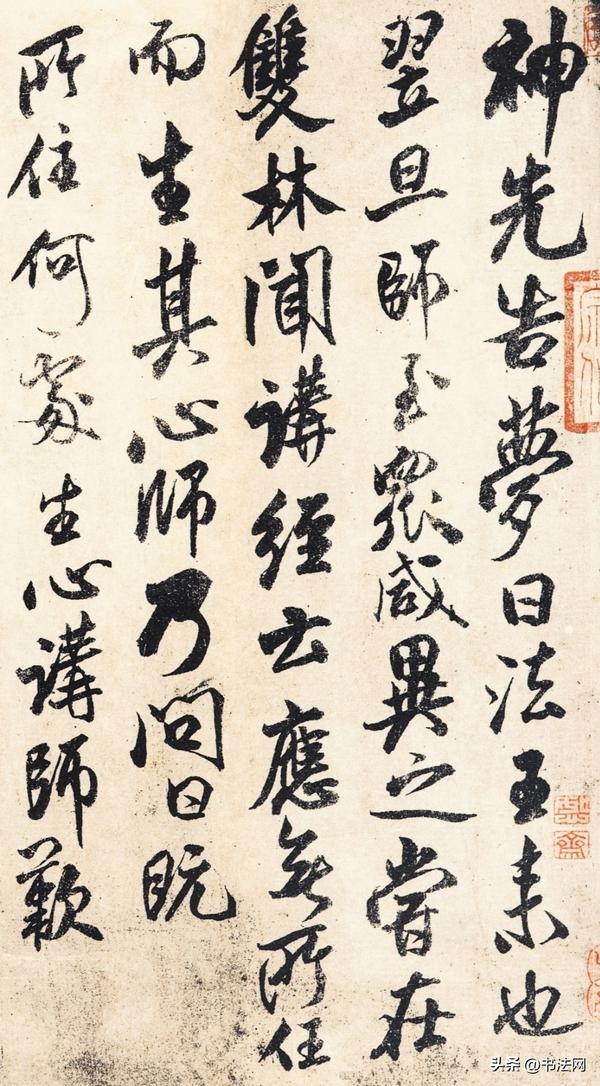 神先告夢曰法王来也
翌旦師至眾咸異之嘗在
雙林聞講經云應無所住
而生其心師乃問曰既
所住何處生心講師歎
头条 @书法网